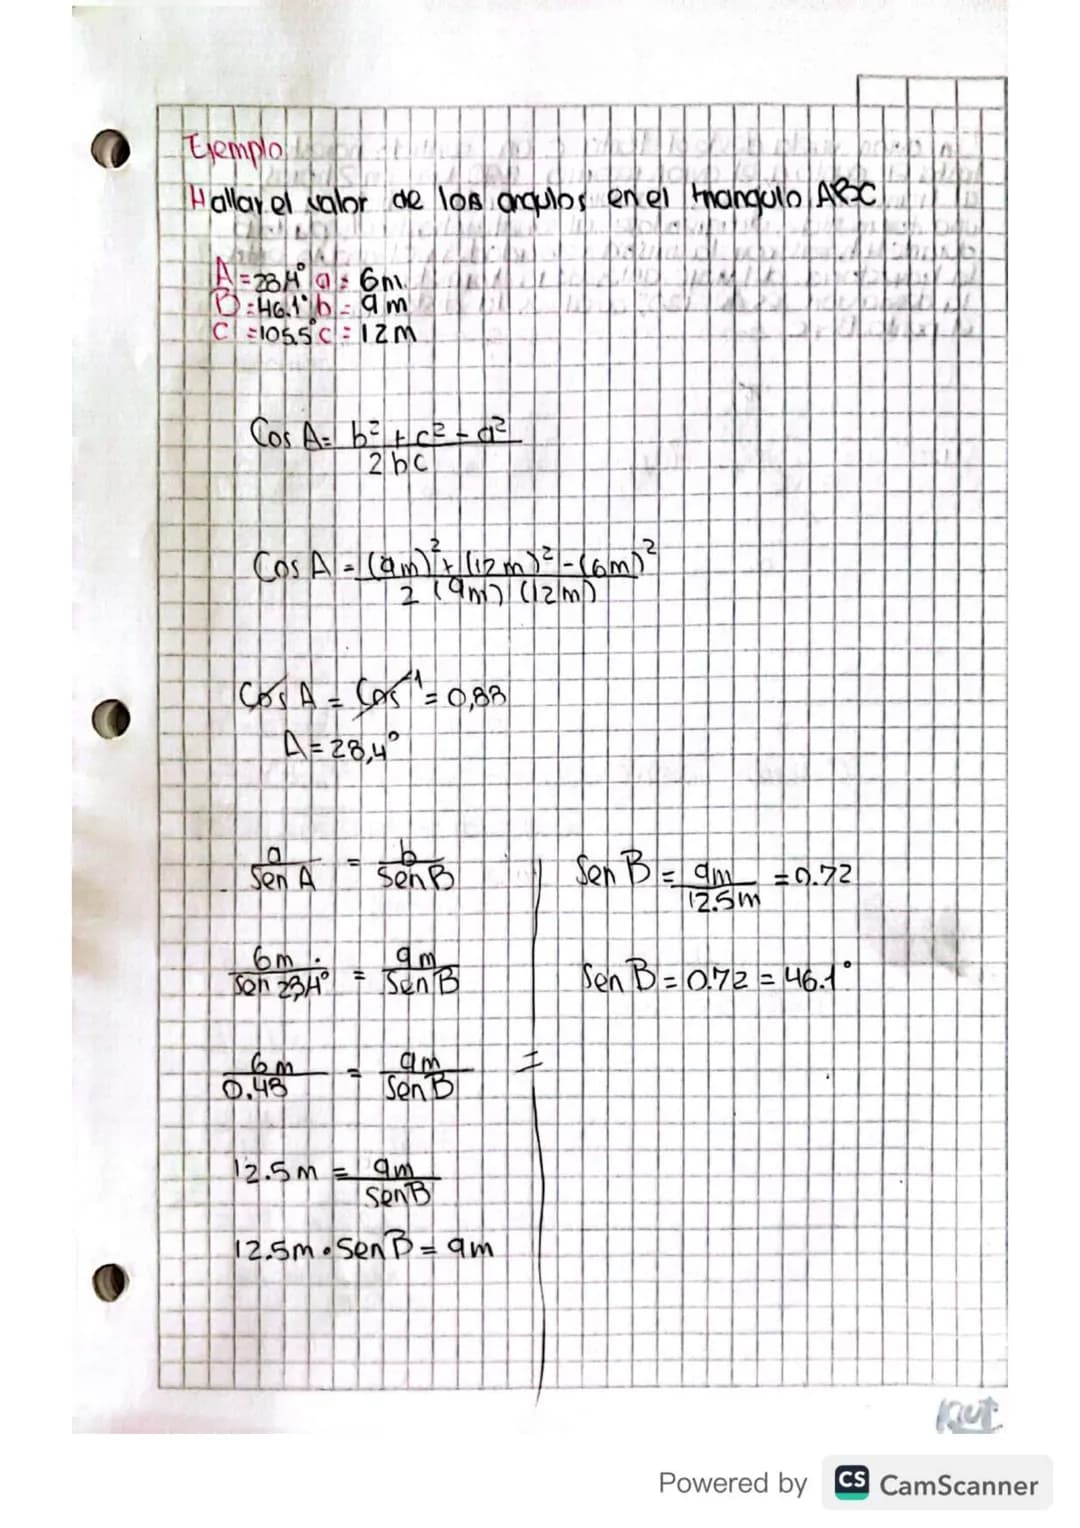 Ejemplo
Hallar el valor de los angulos en el triangulo ABC
A=28,4° a= 6m
B=46.1° b= 9m
C =105.5° c= 12m
Cos A= b² + c² - a²
2bc
Cos A = (9m)² + (12m)² - (6m)²
2 (9m) (12m)
Cos A = Cos⁻¹ = 0,88
A = 28,4°
a = b
Sen A Sen B
6m = 9m
Sen 28,4° Sen B
6m = 9m =
0.48 Sen B
12.5m = 9m
Sen B
12.5m • Sen B = 9m
Sen B = 9m = 0.72
12.5m
Sen B = 0.72 = 46.1°
Powered by CS CamScanner